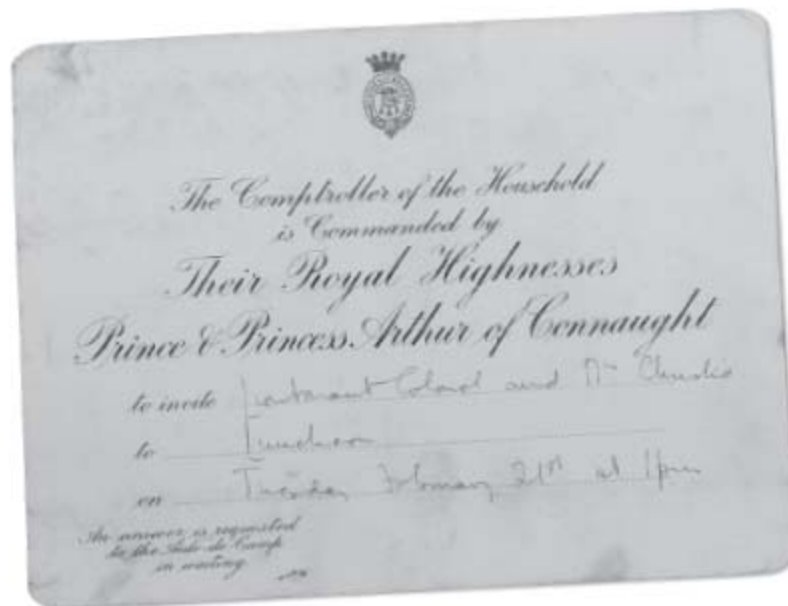 The Comptroller of the Household
is Commanded by
Their Royal Highnesses
Prince & Princess Arthur of Connaught
to invite Lieutenant Colonel and Mrs Christie
to Luncheon
on Tuesday February 21st at 1pm
An answer is requested
to the Aide-de-Camp
in waiting.